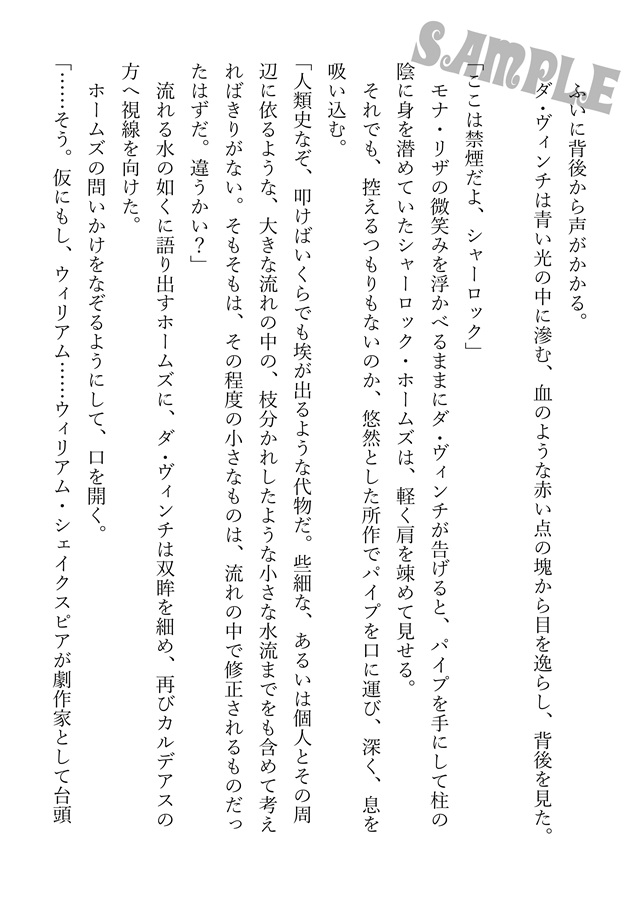 SAMPLE
ふいに背後から声がかかる。
ダ・ヴィンチは青い光の中に滲む、血のような赤い点の塊から目を逸らし、背後を見た。
「ここは禁煙だよ、シャーロック」
モナ・リザの微笑みを浮かべるままにダ・ヴィンチが告げると、パイプを手にして柱の
陰に身を潜めていたシャーロック・ホームズは、軽く肩を竦めて見せる。
それでも、控えるつもりもないのか、悠然とした所作でパイプを口に運び、深く、息を
吸い込む。
「人類史なぞ、叩けばいくらでも埃が出るような代物だ。些細な、あるいは個人とその周
辺に依るような、大きな流れの中の、枝分かれしたような小さな水流までをも含めて考え
ればきりがない。そもそもは、その程度の小さなものは、流れの中で修正されるものだっ
たはずだ。違うかい？」
流れる水の如くに語り出すホームズに、ダ・ヴィンチは双眸を細め、再びカルデアスの
方へ視線を向けた。
ホームズの問いかけをなぞるようにして、口を開く。
「……そう。仮にもし、ウィリアム……ウィリアム・シェイクスピアが劇作家として台頭